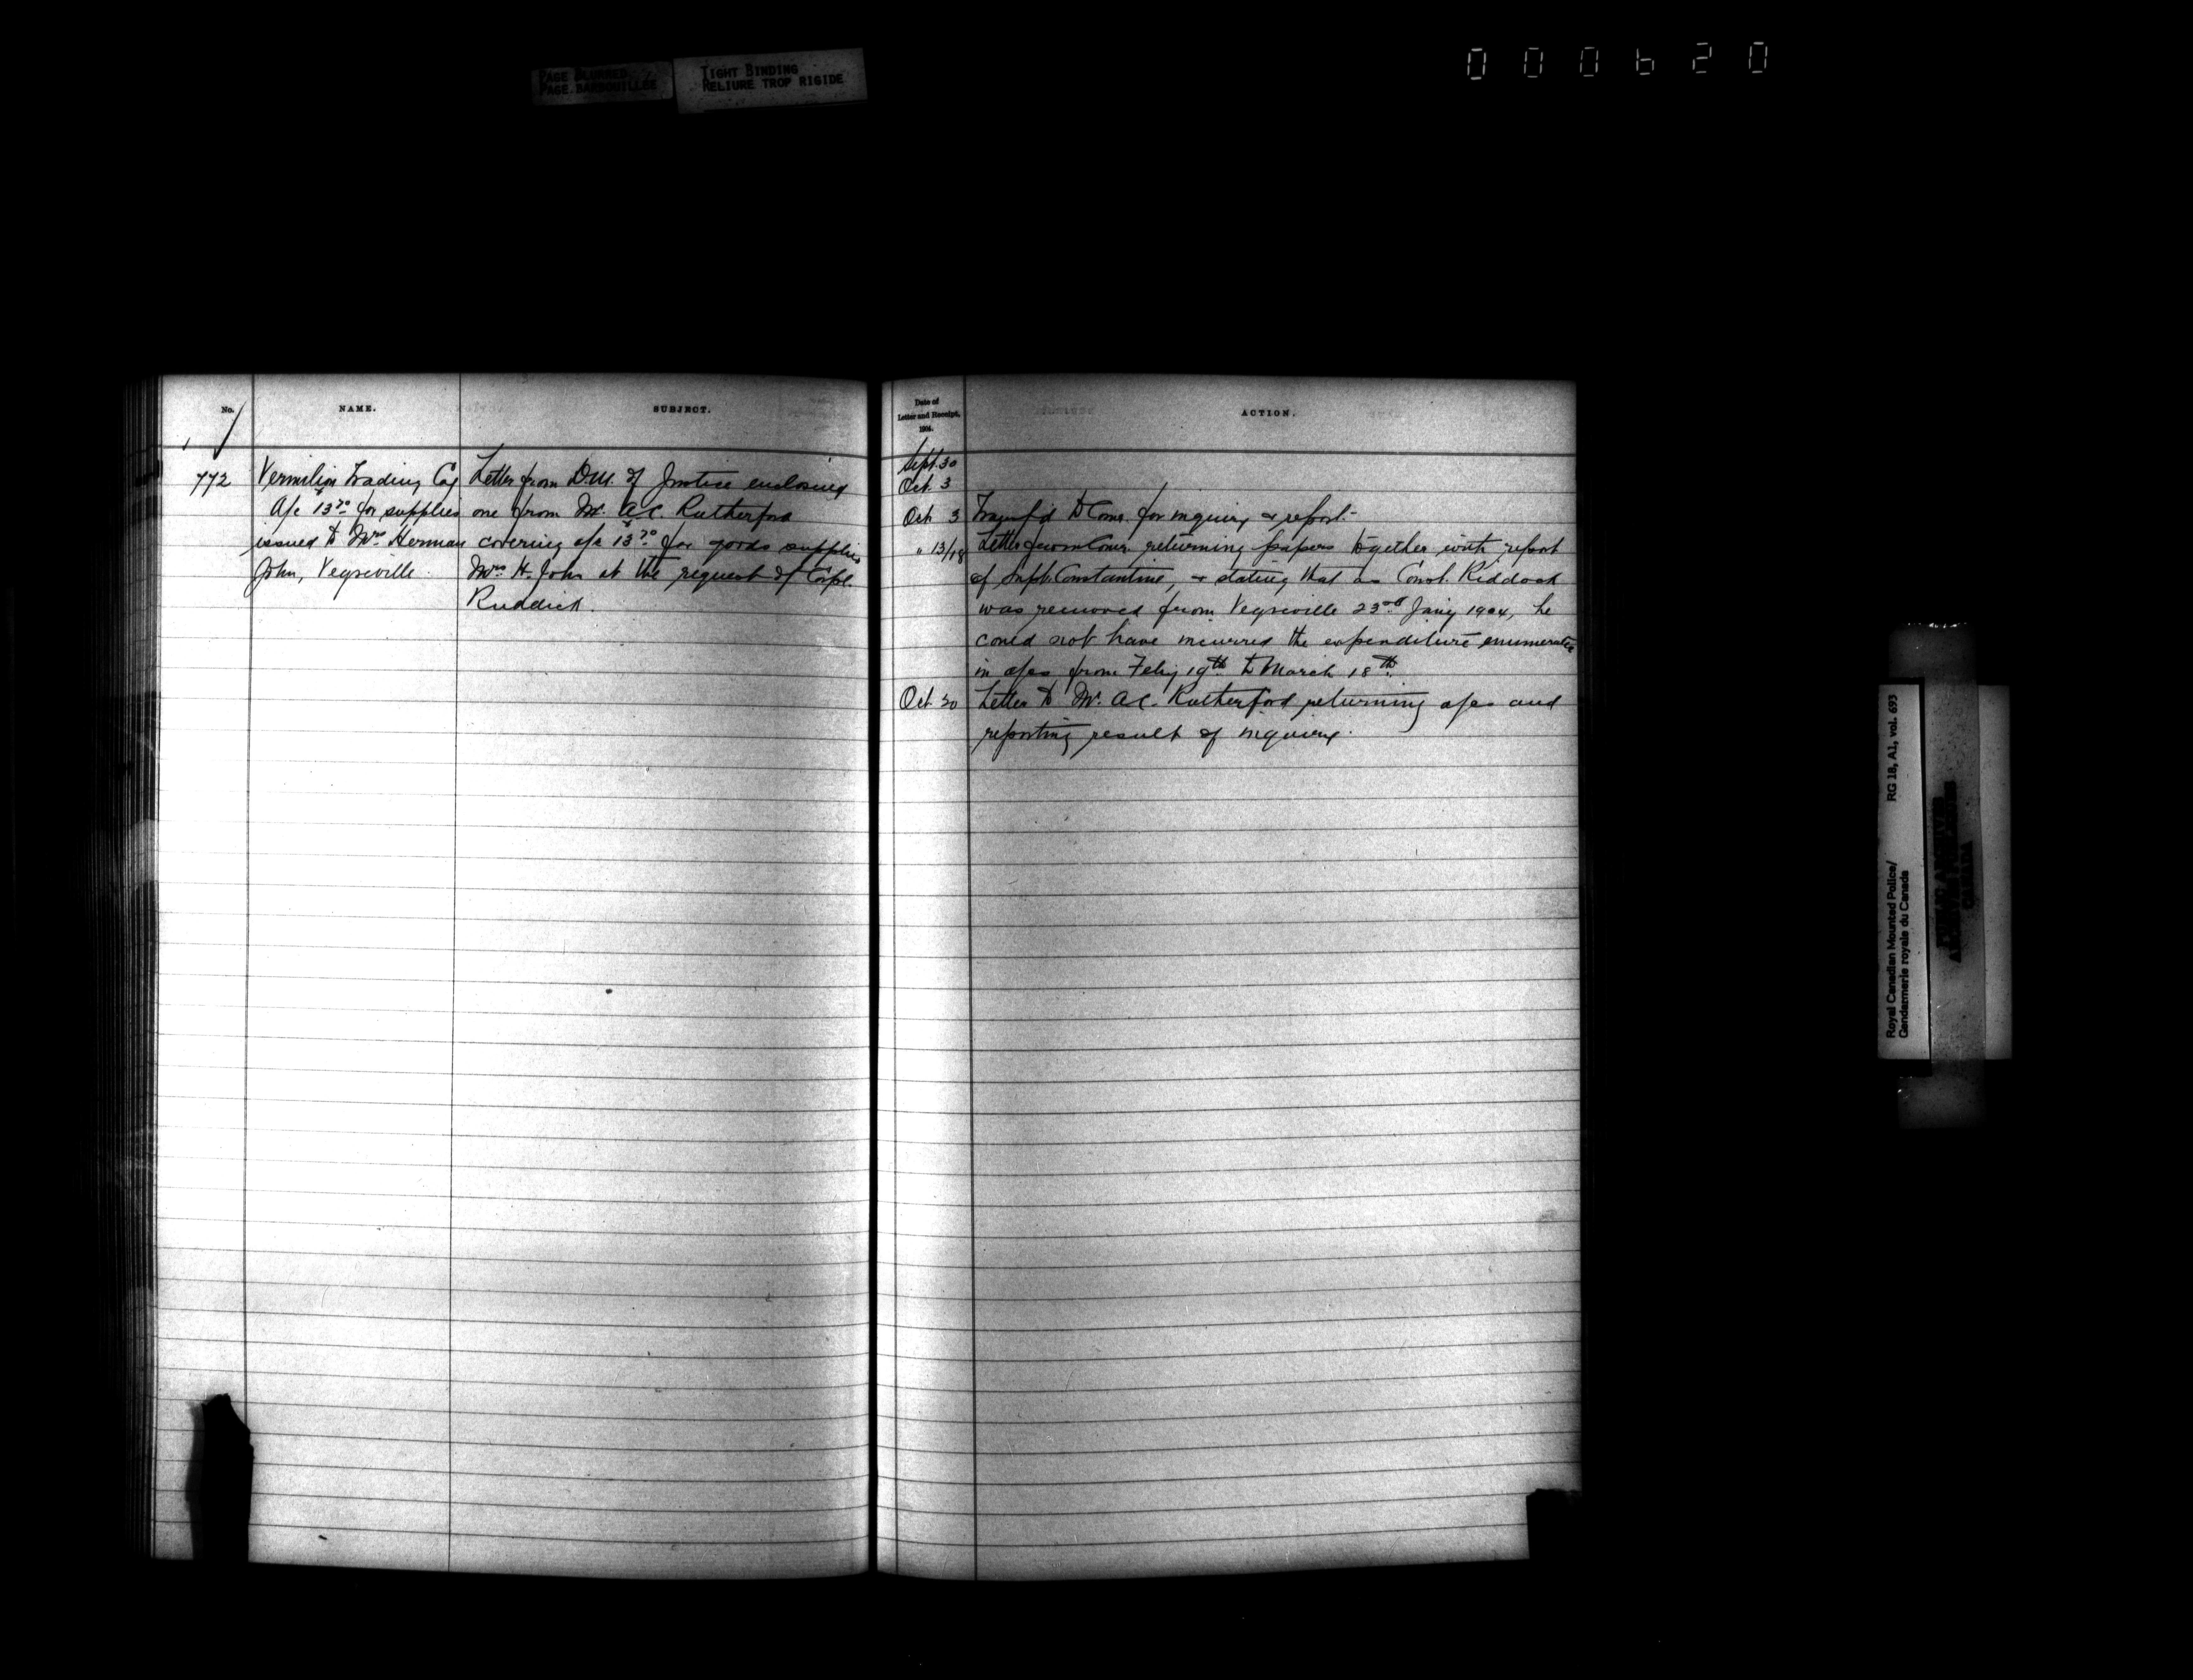 PAGE BLURRED
PAGE BARBOUILLEE
TIGHT BINDING
RELIURE TROP RIGIDE
000620
No.
NAME.
SUBJECT.
772
Vermilion Trading Coy
A/c $13.70 for supplies
issued to Mrs Herman
John, Vegreville.
Letter from D.M. of Justice enclosing
one from Mr. A.C. Rutherford
covering a/c $13.70 for goods supplied
Mrs H. John at the request of Corpl.
Ruddick.
Date of
Letter and Receipt,
1904.
ACTION.
Sept. 30
Oct. 3
Oct 3 Transf'd to Comr. for inquiry & report.
" 13/18 Letter from Comr. returning papers together with report
of Supt. Constantine, & stating that as Const. Riddock
was removed from Vegreville 23rd Jan'y 1904, he
could not have incurred the expenditure enumerated
in a/cs from Feb'y 19th to March 18th.
Oct. 20 Letter to Mr. A.C. Rutherford returning a/cs and
reporting result of inquiry.
Royal Canadian Mounted Police/
Gendarmerie royale du Canada
RG 18, A1, vol. 693
PUBLIC ARCHIVES
ARCHIVES PUBLIQUES
CANADA